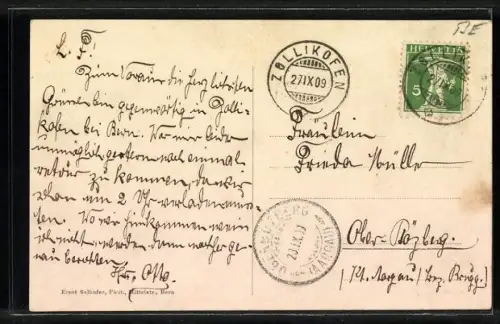 BE
L. F.!
Zum Voraus die herzlichsten
Grüsse bin gegenwärtig in Zolli-
kofen bei Bern. War mir leider
unmöglich, gestern noch einmal
retour zu kommen, da wir
schon um 2 Uhr verladen muss-
ten. Wo wir hinkommen weiss
ich nicht, werde dann nachher ge-
nau berichten.
Otto
Ernst Selhofer, Bern
ZOLLIKOFEN
27.IX.09
HELVETIA
5
Fräulein
Frieda Müller
OBER-BÖZBERG
(AARGAU)
Ober-Bözberg
(Kt. Aargau) Bez. Brugg.